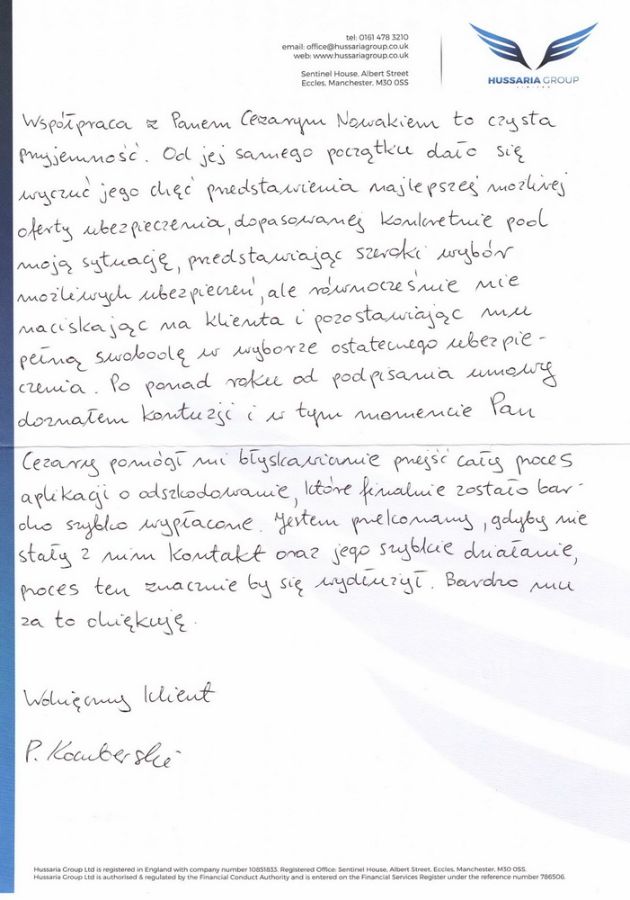 tel: 0161 478 3210
email: office@hussariagroup.co.uk
web: www.hussariagroup.co.uk
Sentinel House, Albert Street
Eccles, Manchester, M30 0SS
HUSSARIA GROUP
LIMITED
Współpraca z Panem Cezarym Nowakiem to czysta
przyjemność. Od jej samego początku dało się
wyczuć jego chęć przedstawienia najlepszej możliwej
oferty ubezpieczenia, dopasowanej konkretnie pod
moją sytuację, przedstawiając szeroki wybór
możliwych ubezpieczeń, ale równocześnie nie
naciskając na klienta i pozostawiając mu
pełną swobodę w wyborze ostatecznego ubezpie-
czenia. Po ponad roku od podpisania umowy
doznałem kontuzji i w tym momencie Pan
Cezary pomógł mi błyskawicznie przejść cały proces
aplikacji o odszkodowanie, które finalnie zostało bar-
dzo szybko wypłacone. Jestem przekonany, gdyby nie
stały z nim kontakt oraz jego szybkie działanie,
proces ten znacznie by się wydłużył. Bardzo mu
za to dziękuję.
Wdzięczny klient
P.
Hussaria Group Ltd is registered in England with company number 10851833. Registered Office: Sentinel House, Albert Street, Eccles, Manchester, M30 0SS.
Hussaria Group Ltd is authorised & regulated by the Financial Conduct Authority and is entered on the Financial Services Register under the reference number 786506.